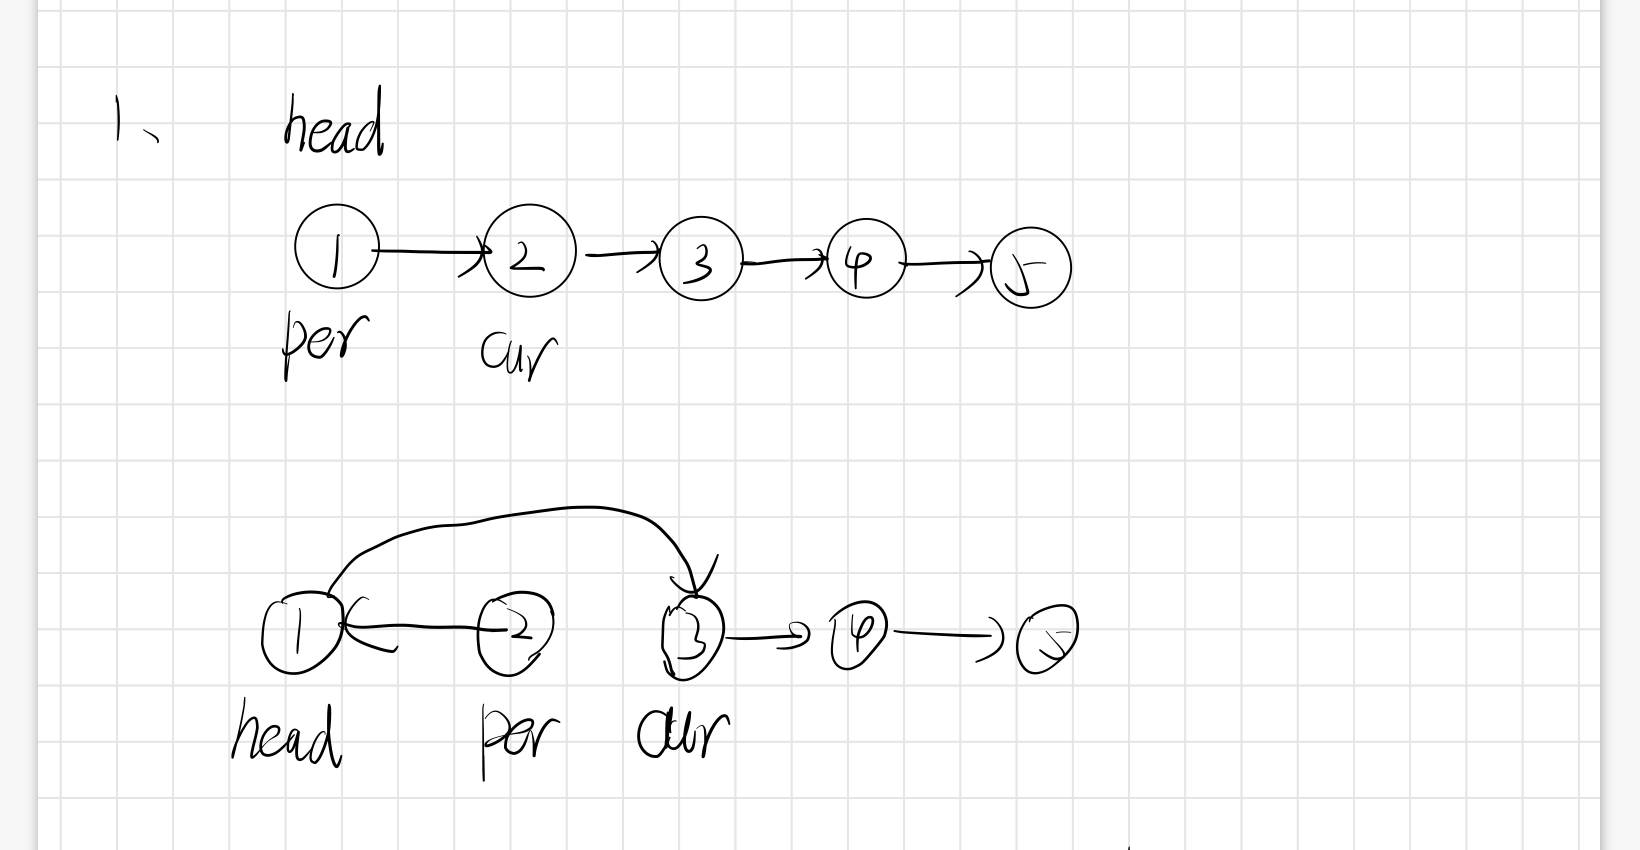 1、 head
1 2 3 4 5
per cur
1 2 3 4 5
head per cur